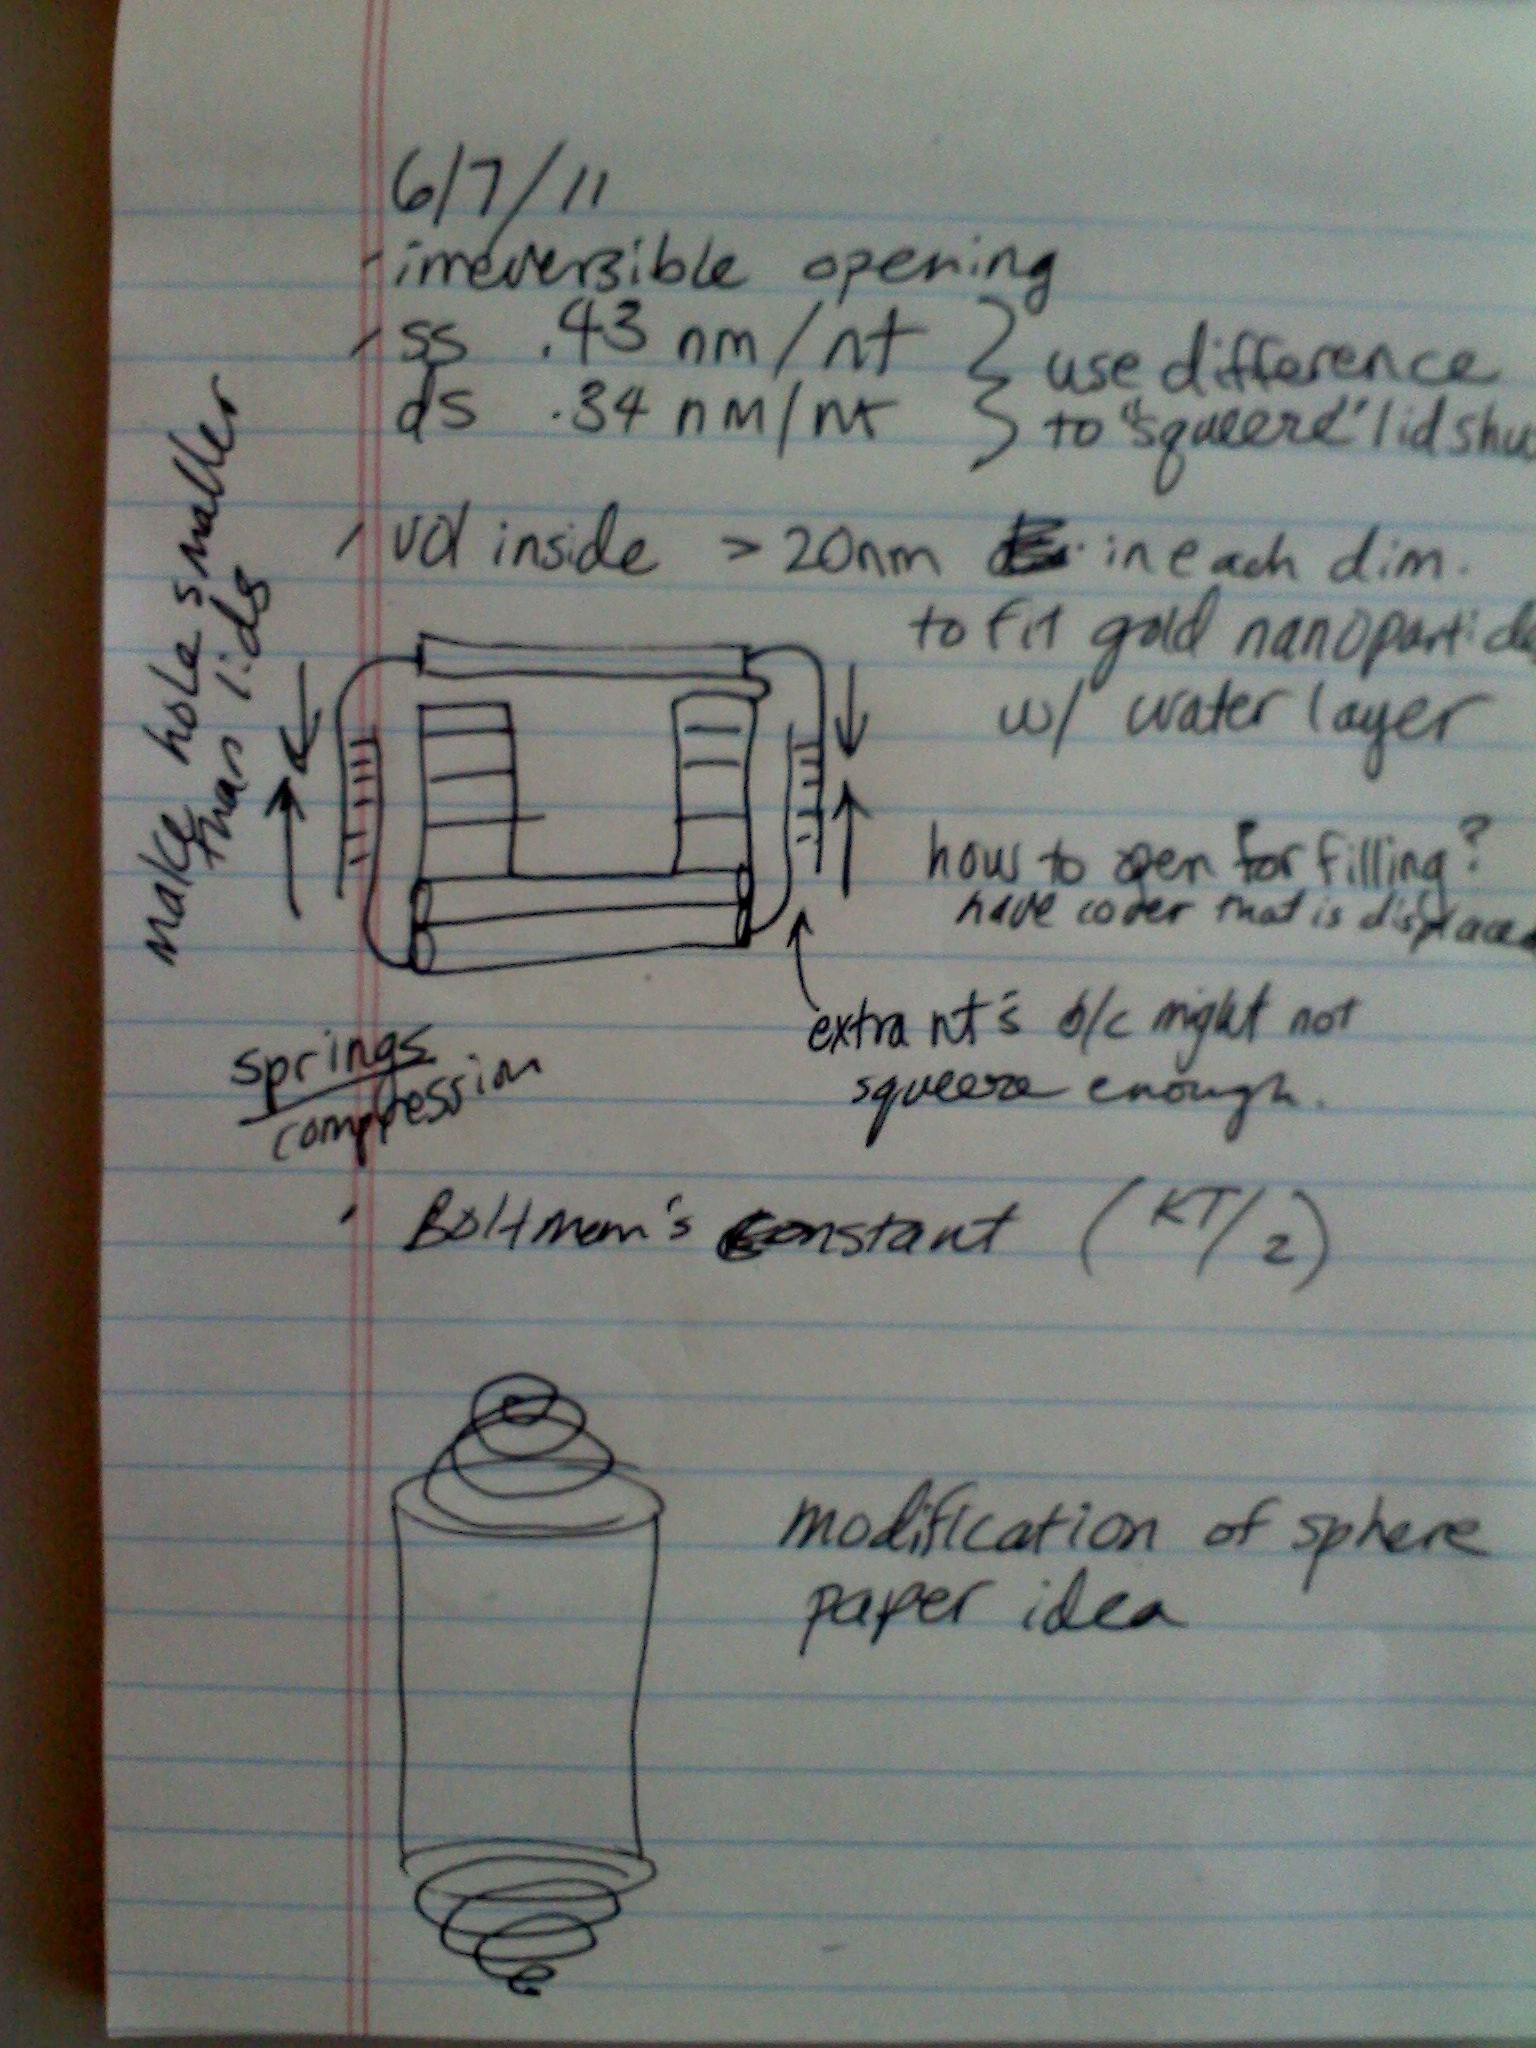 6/7/11
- irreversible opening
- ss .43 nm/nt } use difference
ds .34 nm/nt } to "squeeze" lid shu
- vol inside > 20nm in each dim.
to fit gold nanopartic
w/ water layer
make hole smaller
than lids
how to open for filling?
have cover that is displace
extra nt's b/c might not
squeeze enough.
springs
compression
· Boltmann's constant (KT/2)
modification of sphere
paper idea